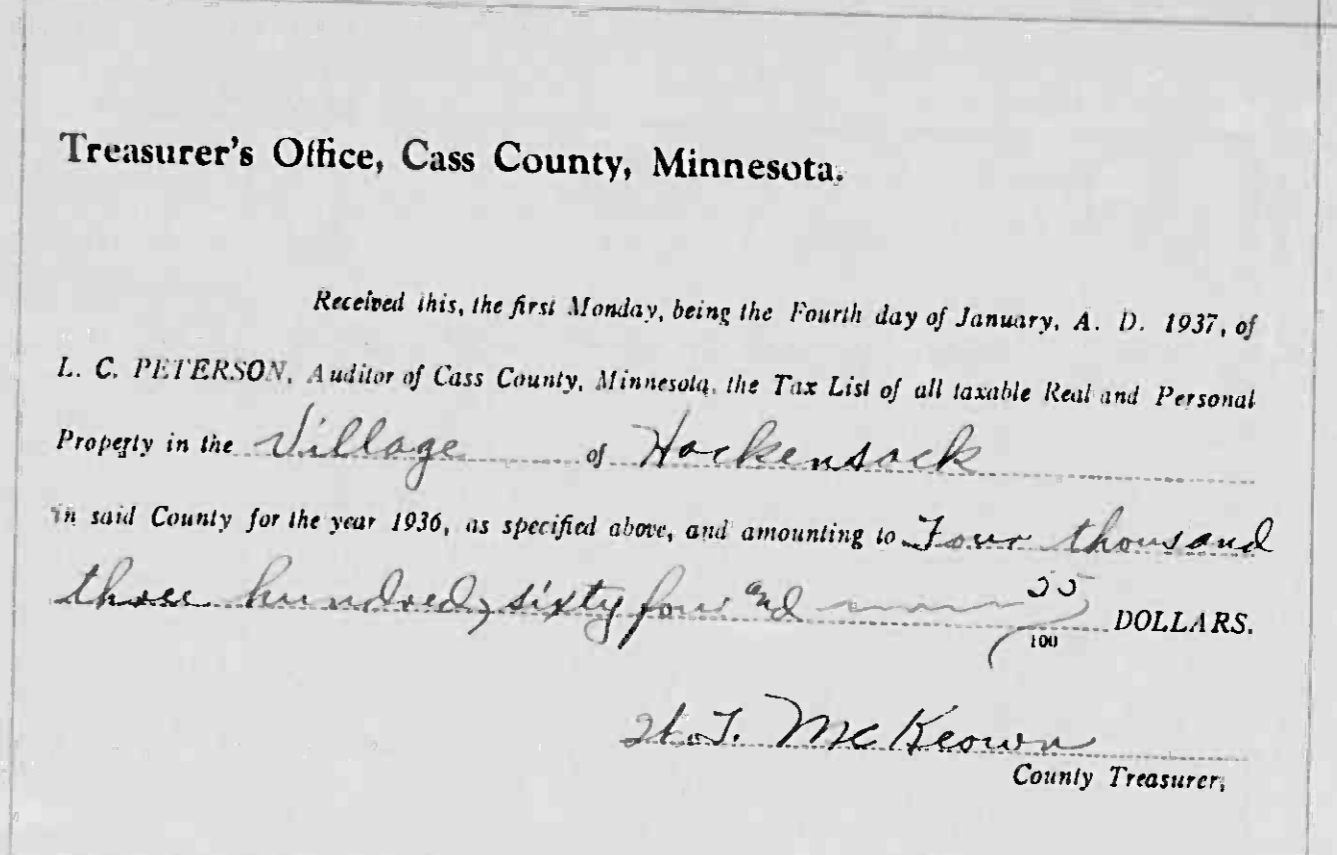 Treasurer's Office, Cass County, Minnesota.
Received this, the first Monday, being the Fourth day of January, A. D. 1937, of
L. C. PETERSON, Auditor of Cass County, Minnesota, the Tax List of all taxable Real and Personal
Property in the Village of Hackensack
in said County for the year 1936, as specified above, and amounting to Four thousand
three hundred, sixty four and 55/100 DOLLARS.
McKeown
County Treasurer.